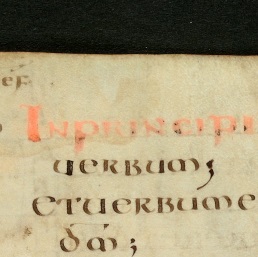 INPRINCIPI
UERBUM;
ETUERBUME
dm̄;